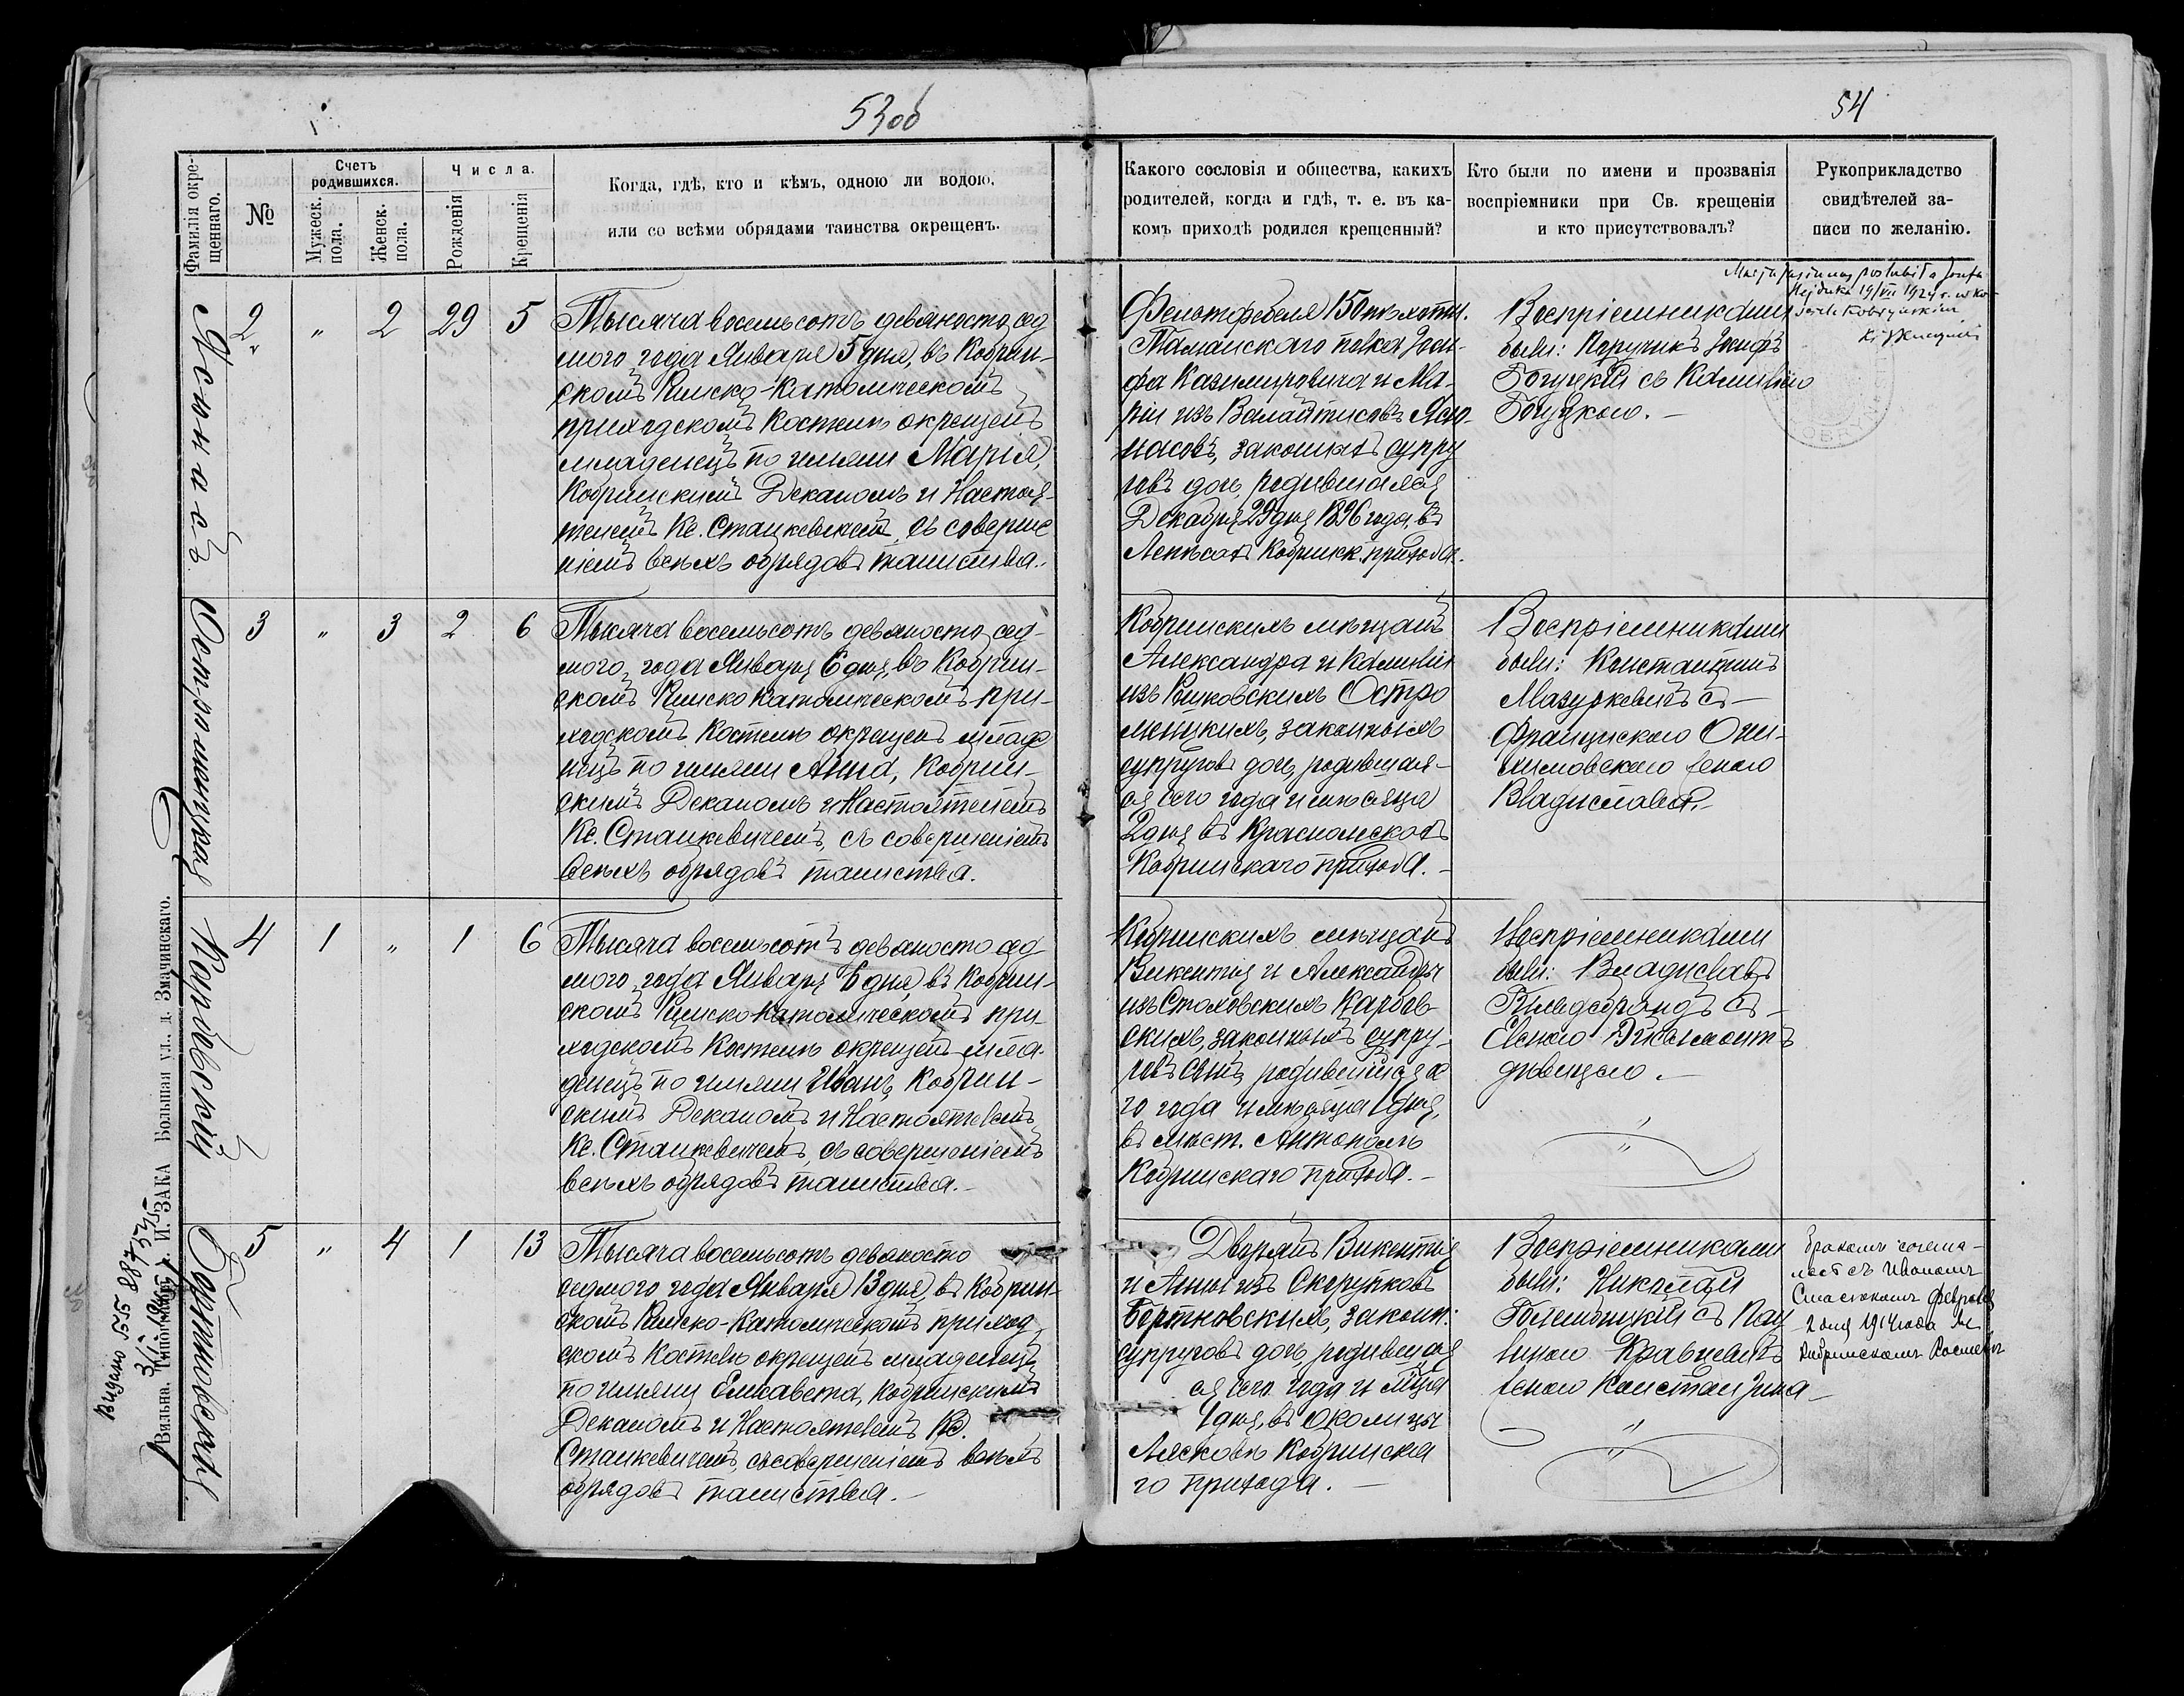 53об
54
Фамилія окрещеннаго.
№
Счетъ родившихся.
Мужеск. пола.
Женск. пола.
Числа.
Рожденія
Крещенія
Когда, гдѣ, кто и кѣмъ, одною ли водою,
или со всѣми обрядами таинства окрещенъ.
Какого сословія и общества, какихъ
родителей, когда и гдѣ, т. е. въ ка-
комъ приходѣ родился крещенный?
Кто были по имени и прозванія
воспріемники при Св. крещеніи
и кто присутствовалъ?
Рукоприкладство
свидѣтелей за-
писи по желанію.
Ясюнасъ
2 " 2 29 5
Тысяча восемьсотъ девяносто сед
мого года Января 5 дня, въ Кобрин-
скомъ Римско-Католическомъ
приходскомъ Костелѣ окрещенъ
младенецъ по имени Марія,
Кобринскимъ Деканомъ и Настоя-
телемъ Кс. Станкевичемъ, съ соверше
ніемъ всѣхъ обрядовъ таинства.
Фельдфебеля 150 пѣхотн.
Таманскаго полка Іоси-
фа Казимировича и Ма-
ріи изъ Ясю-
насовъ, законныхъ супру
говъ дочь, родившаяся
Декабря 29 дня 1896 года, въ
Кобринск. прихода.
Воспріемниками
были: Поручикъ Іосифъ
Богуцкій съ Камиліею
Богуцкою.
19/VII 1924 r. w Ko-
ściele Kobryńskim
Остромецкая
3 " 3 2 6
Тысяча восемьсотъ девяносто сед-
мого года Января 6 дня, въ Кобрин-
скомъ Римско Католическомъ при-
ходскомъ Костелѣ окрещенъ младе
нецъ по имени Анна, Кобрин-
скимъ Деканомъ и Настоятелемъ
Кс. Станкевичемъ, съ совершеніемъ
всѣхъ обрядовъ таинства.
Кобринскихъ мѣщанъ
Александра и Камиліи
изъ Остро
мецкихъ, законныхъ
супруговъ дочь, родившая-
ся сего года и мѣсяца
2 дня въ
Кобринскаго прихода.
Воспріемниками
были: Константинъ
Мазуркевичъ съ
Францискою
женою
Владислава.
Карбовскій
4 1 " 1 6
Тысяча восемьсотъ девяносто сед
мого года Января 6 дня, въ Кобрин-
скомъ Римско Католическомъ при-
ходскомъ Костелѣ окрещенъ мла-
денецъ по имени Иванъ, Кобрин-
скимъ Деканомъ и Настоятелемъ
Кс. Станкевичемъ, съ совершеніемъ
всѣхъ обрядовъ таинства.
Кобринскихъ мѣщанъ
Викентія и Александры
изъ Карбов
скихъ, законныхъ супру-
говъ сынъ, родившійся се
го года и мѣсяца 1 дня,
въ мѣст. Антополѣ
Кобринскаго прихода.
Воспріемниками
были: Владиславъ
Гильдебрандъ съ
дѣвицею.
Бортновская
5 " 4 1 13
Тысяча восемьсотъ девяносто
седмого года Января 13 дня, въ Кобрин-
скомъ Римско-Католическомъ приход
скомъ Костелѣ окрещенъ младенецъ
по имени Елисавета, Кобринскимъ
Деканомъ и Настоятелемъ Кс.
Станкевичемъ, съ совершеніемъ всѣхъ
обрядовъ таинства.
Дворянъ Викентія
и Анны изъ
Бортновскихъ, законн:
супруговъ дочь, родившая
ся сего года и мѣсяца
1 дня, въ околицы
Лясковѣ Кобринска
го прихода.
Воспріемниками
были: Николай
съ Пау
линою Кравцевичъ
женою Константина
Бракомъ сочета-
лась съ Иваномъ
Стасюкомъ Февраля
2 дня 1914 года въ
Кобринскомъ Костелѣ
Вильна, Типографія И. ЗАКА Большая ул., д. Змачинскаго.